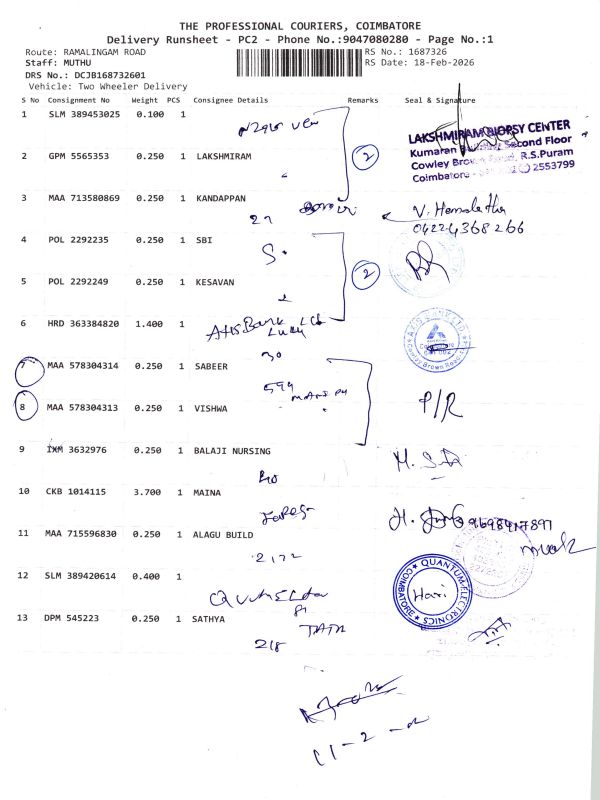 THE PROFESSIONAL COURIERS, COIMBATORE
Delivery Runsheet - PC2 - Phone No.:9047080280 - Page No.:1
Route: RAMALINGAM ROAD RS No.: 1687326
Staff: MUTHU RS Date: 18-Feb-2026
DRS No.: DCJB168732601
Vehicle: Two Wheeler Delivery
S No Consignment No Weight PCS Consignee Details Remarks Seal & Signature
1 SLM 389453025 0.100 1
LAKSHMIRAM BIOPSY CENTER
Kumaran Second Floor
2 GPM 5565353 0.250 1 LAKSHMIRAM 2
Cowley Brown Road, R.S.Puram
Coimbatore - 2553799
3 MAA 713580869 0.250 1 KANDAPPAN
27 V. Hemalatha
04224368266
4 POL 2292235 0.250 1 SBI
S.
5 POL 2292249 0.250 1 KESAVAN 2
6 HRD 363384820 1.400 1
Axis Bank Ltd
30
7 MAA 578304314 0.250 1 SABEER
594
8 MAA 578304313 0.250 1 VISHWA P/R
9 IXM 3632976 0.250 1 BALAJI NURSING
10 CKB 1014115 3.700 1 MAINA
11 MAA 715596830 0.250 1 ALAGU BUILD
2172
12 SLM 389420614 0.400 1
QUANTUM ELECTRONICS
COIMBATORE
Hari
13 DPM 545223 0.250 1 SATHYA
TATA
218